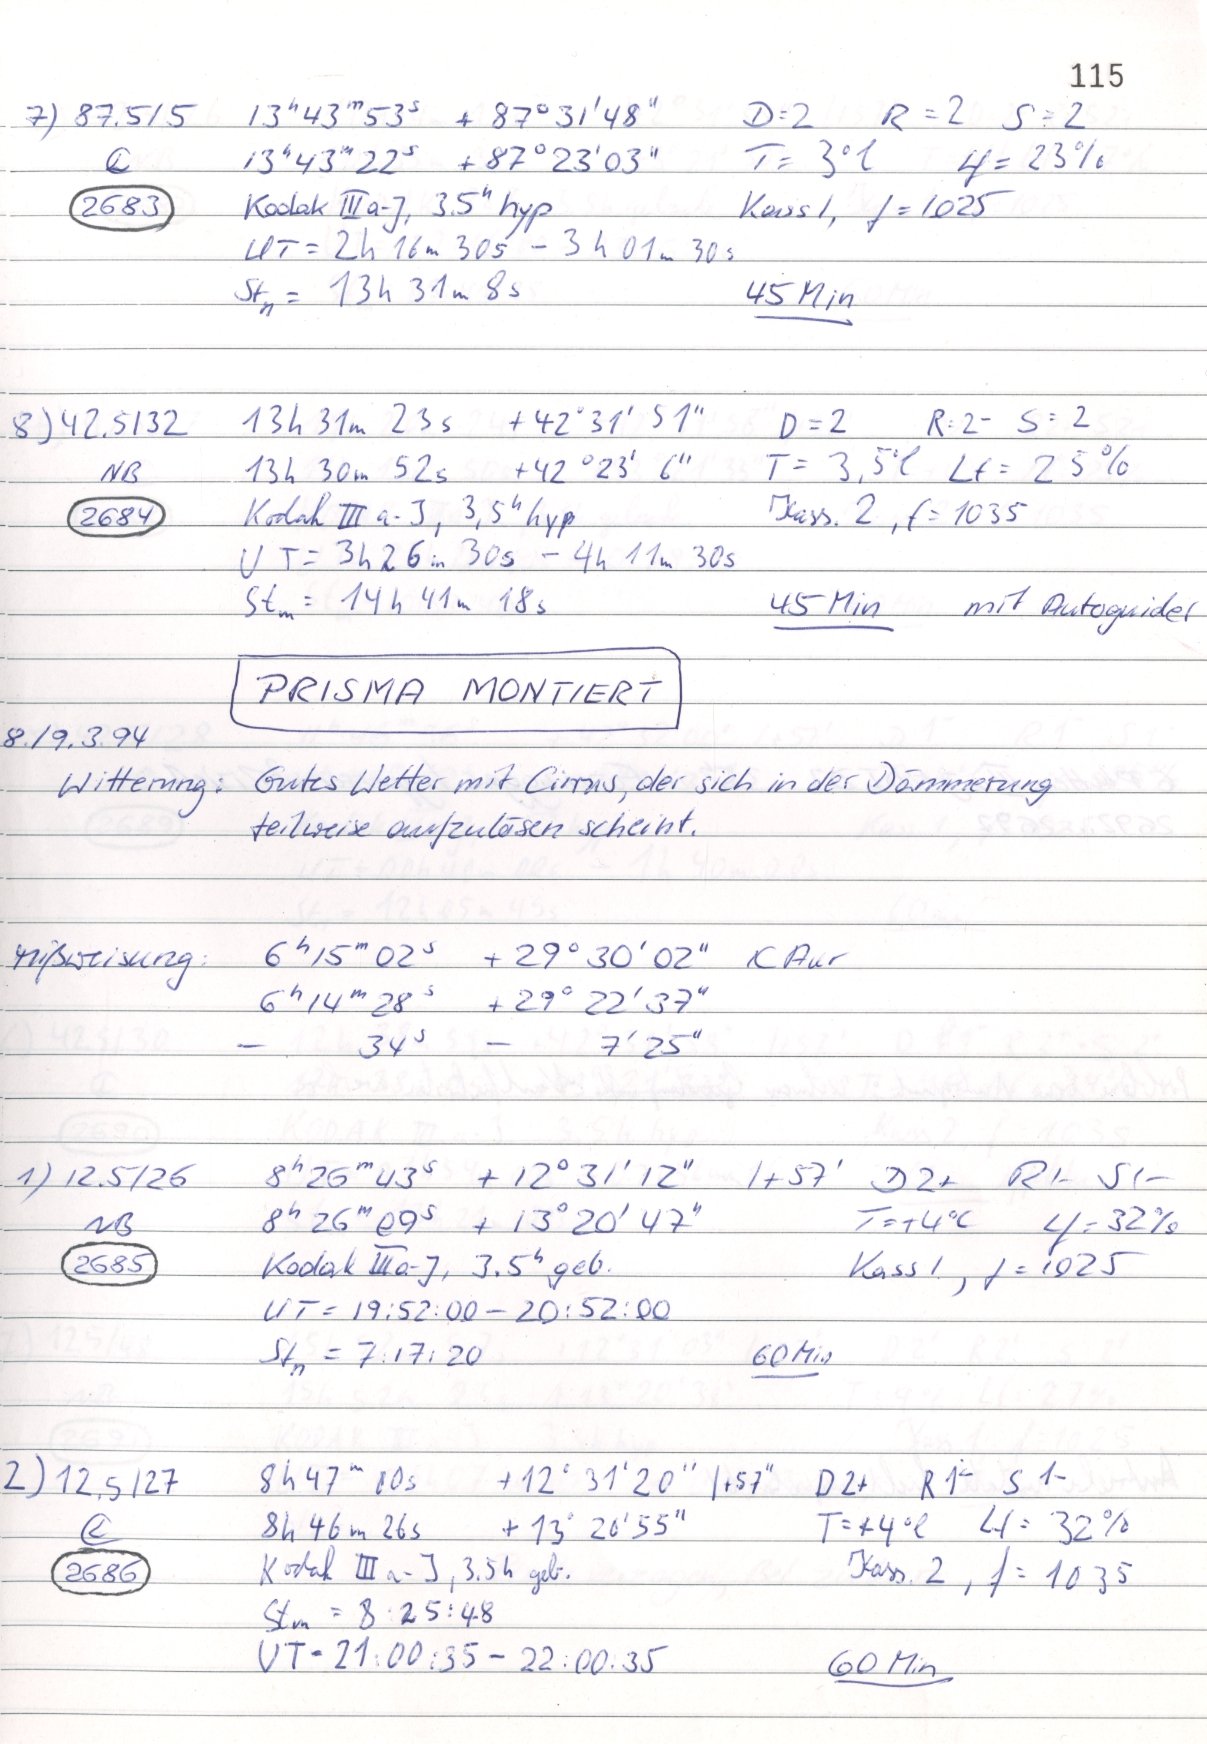 115
7) 87.5/5 13ʰ43ᵐ53ˢ + 87°31'48" D=2 R=2 S=2
C 13ʰ43ᵐ22ˢ + 87°23'03" T= 3°C Lf= 23%
2683 Kodak IIIa-J, 3.5ʰ hyp Kass 1, f=1025
UT= 2h 16m 30s - 3h 01m 30s
Stₙ = 13h 31m 8s 45 Min
8) 42.5/32 13h 31m 23s +42°31' 51" D=2 R=2- S=2
NB 13h 30m 52s +42°23' 6" T= 3,5°C Lf= 25%
2684 Kodak III a-J, 3,5ʰ hyp Kass. 2, f=1035
UT= 3h 26m 30s - 4h 11m 30s
Stₘ = 14h 41m 18s 45 Min mit Autoguider
PRISMA MONTIERT
8./9.3.94
Witterung: Gutes Wetter mit Cirrus, der sich in der Dämmerung
teilweise aufzulösen scheint.
Mißweisung: 6ʰ15ᵐ02ˢ + 29°30'02" κ Aur
6ʰ14ᵐ28ˢ + 29°22'37"
- 34ˢ - 7'25"
1) 12.5/26 8ʰ26ᵐ43ˢ + 12°31'12" /+57' D2+ R1- S1-
NB 8ʰ26ᵐ09ˢ + 13°20'47" T=+4°C Lf=32%
2685 Kodak IIIa-J, 3.5ʰ geb. Kass 1, f=1025
UT= 19:52:00 - 20:52:00
Stₙ = 7:17:20 60 Min
2) 12.5/27 8h 47ᵐ 00s +12°31'20" /+57" D2+ R1- S1-
C 8h 46m 26s +13°20'55" T=+4°C Lf= 32%
2686 Kodak III a-J, 3.5h geb. Kass. 2, f= 1035
Stₘ = 8:25:48
UT=21:00:35 - 22:00:35 60 Min